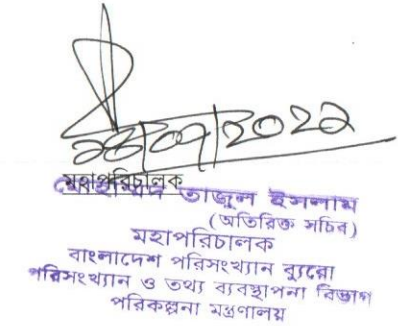 মহাপরিচালক
মোহাম্মদ তাজুল ইসলাম
(অতিরিক্ত সচিব)
মহাপরিচালক
বাংলাদেশ পরিসংখ্যান ব্যুরো
পরিসংখ্যান ও তথ্য ব্যবস্থাপনা বিভাগ
পরিকল্পনা মন্ত্রণালয়